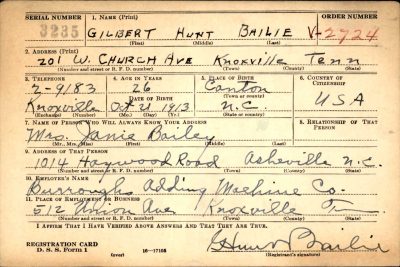 SERIAL NUMBER 1. NAME (Print) ORDER NUMBER
3235 GILBERT HUNT BAILIE V-2724
(First) (Middle) (Last)
2. ADDRESS (Print)
201 W. CHURCH AVE KNOXVILLE TENN
(Number and street or R. F. D. number) (Town) (County) (State)
3. TELEPHONE 4. AGE IN YEARS 5. PLACE OF BIRTH 6. COUNTRY OF CITIZENSHIP
2-9183 26 Canton
DATE OF BIRTH (Town or county)
Knoxville Oct 21 1913 N.C. USA
(Exchange) (Number) (Mo.) (Day) (Yr.) (State or country)
7. NAME OF PERSON WHO WILL ALWAYS KNOW YOUR ADDRESS 8. RELATIONSHIP OF THAT PERSON
Mrs. Janie Bailey
(Mr., Mrs., Miss) (First) (Middle) (Last)
9. ADDRESS OF THAT PERSON
1014 Haywood Road Asheville N.C.
(Number and street or R. F. D. number) (Town) (County) (State)
10. EMPLOYER'S NAME
Burroughs Adding Machine Co.
11. PLACE OF EMPLOYMENT OR BUSINESS
512 Union Ave Knoxville
(Number and street or R. F. D. number) (Town) (County) (State)
I AFFIRM THAT I HAVE VERIFIED ABOVE ANSWERS AND THAT THEY ARE TRUE.
REGISTRATION CARD
D. S. S. Form 1 (over) 16-17105 Bailie
(Registrant's signature)